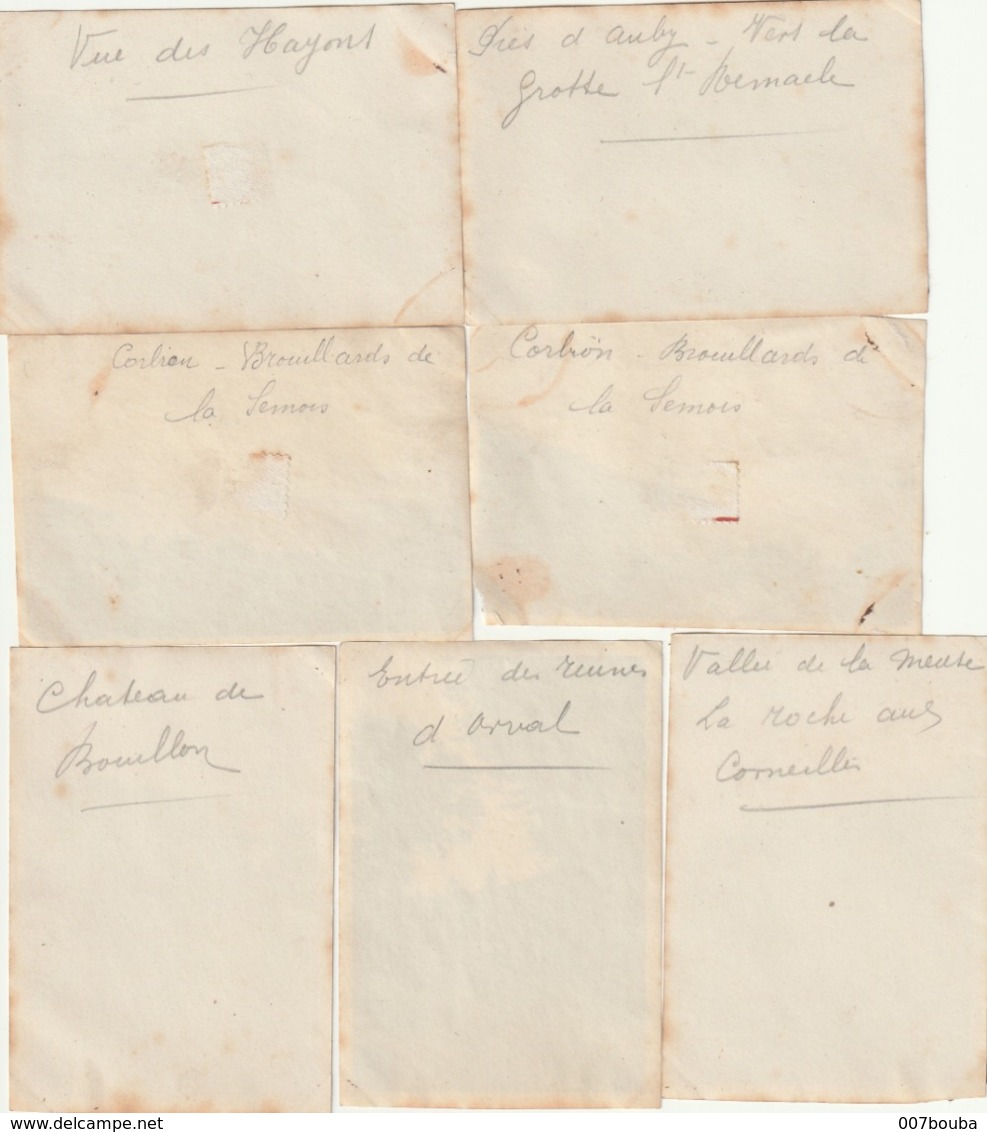 Vue des Hayons
Près d'auby - Vers la
grotte St Remacle
Corbion - Brouillards de
la Semois
Corbion - Brouillards de
la Semois
Chateau de
Bouillon
Entrée des ruines
d'Orval
Vallée de la Meuse
La roche aux
Corneilles
www.delcampe.net
007bouba